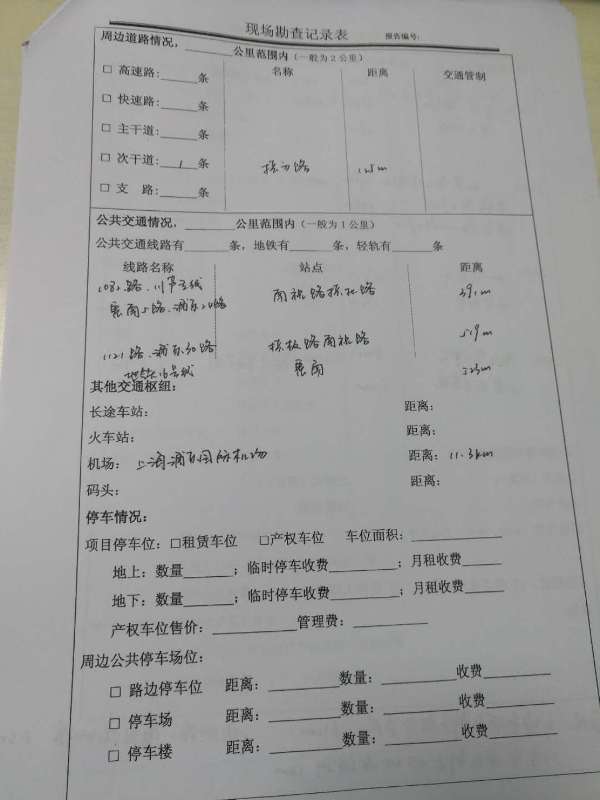 现场勘查记录表 报告编号:
周边道路情况,______公里范围内(一般为2公里)
□ 高速路:_____条 名称 距离 交通管制
□ 快速路:_____条
□ 主干道:_____条
□ 次干道:__1__条 125m
□ 支 路:_____条
公共交通情况,______公里范围内(一般为1公里)
公共交通线路有______条,地铁有_____条,轻轨有_____条
线路名称 站点 距离
391m
519m
1121路、浦东30路
地铁16号线 惠南 323m
其他交通枢纽:
长途车站: 距离:
火车站: 距离:
机场: 上海浦东国际机场 距离: 11.3km
码头: 距离:
停车情况:
项目停车位:□租赁车位 □产权车位 车位面积:__________
地上:数量______;临时停车收费________;月租收费_____
地下:数量______;临时停车收费________;月租收费_____
产权车位售价:__________管理费:_________
周边公共停车场位:
□ 路边停车位 距离:________数量:________收费________
□ 停车场 距离:________数量:________收费________
□ 停车楼 距离:________数量:________收费________